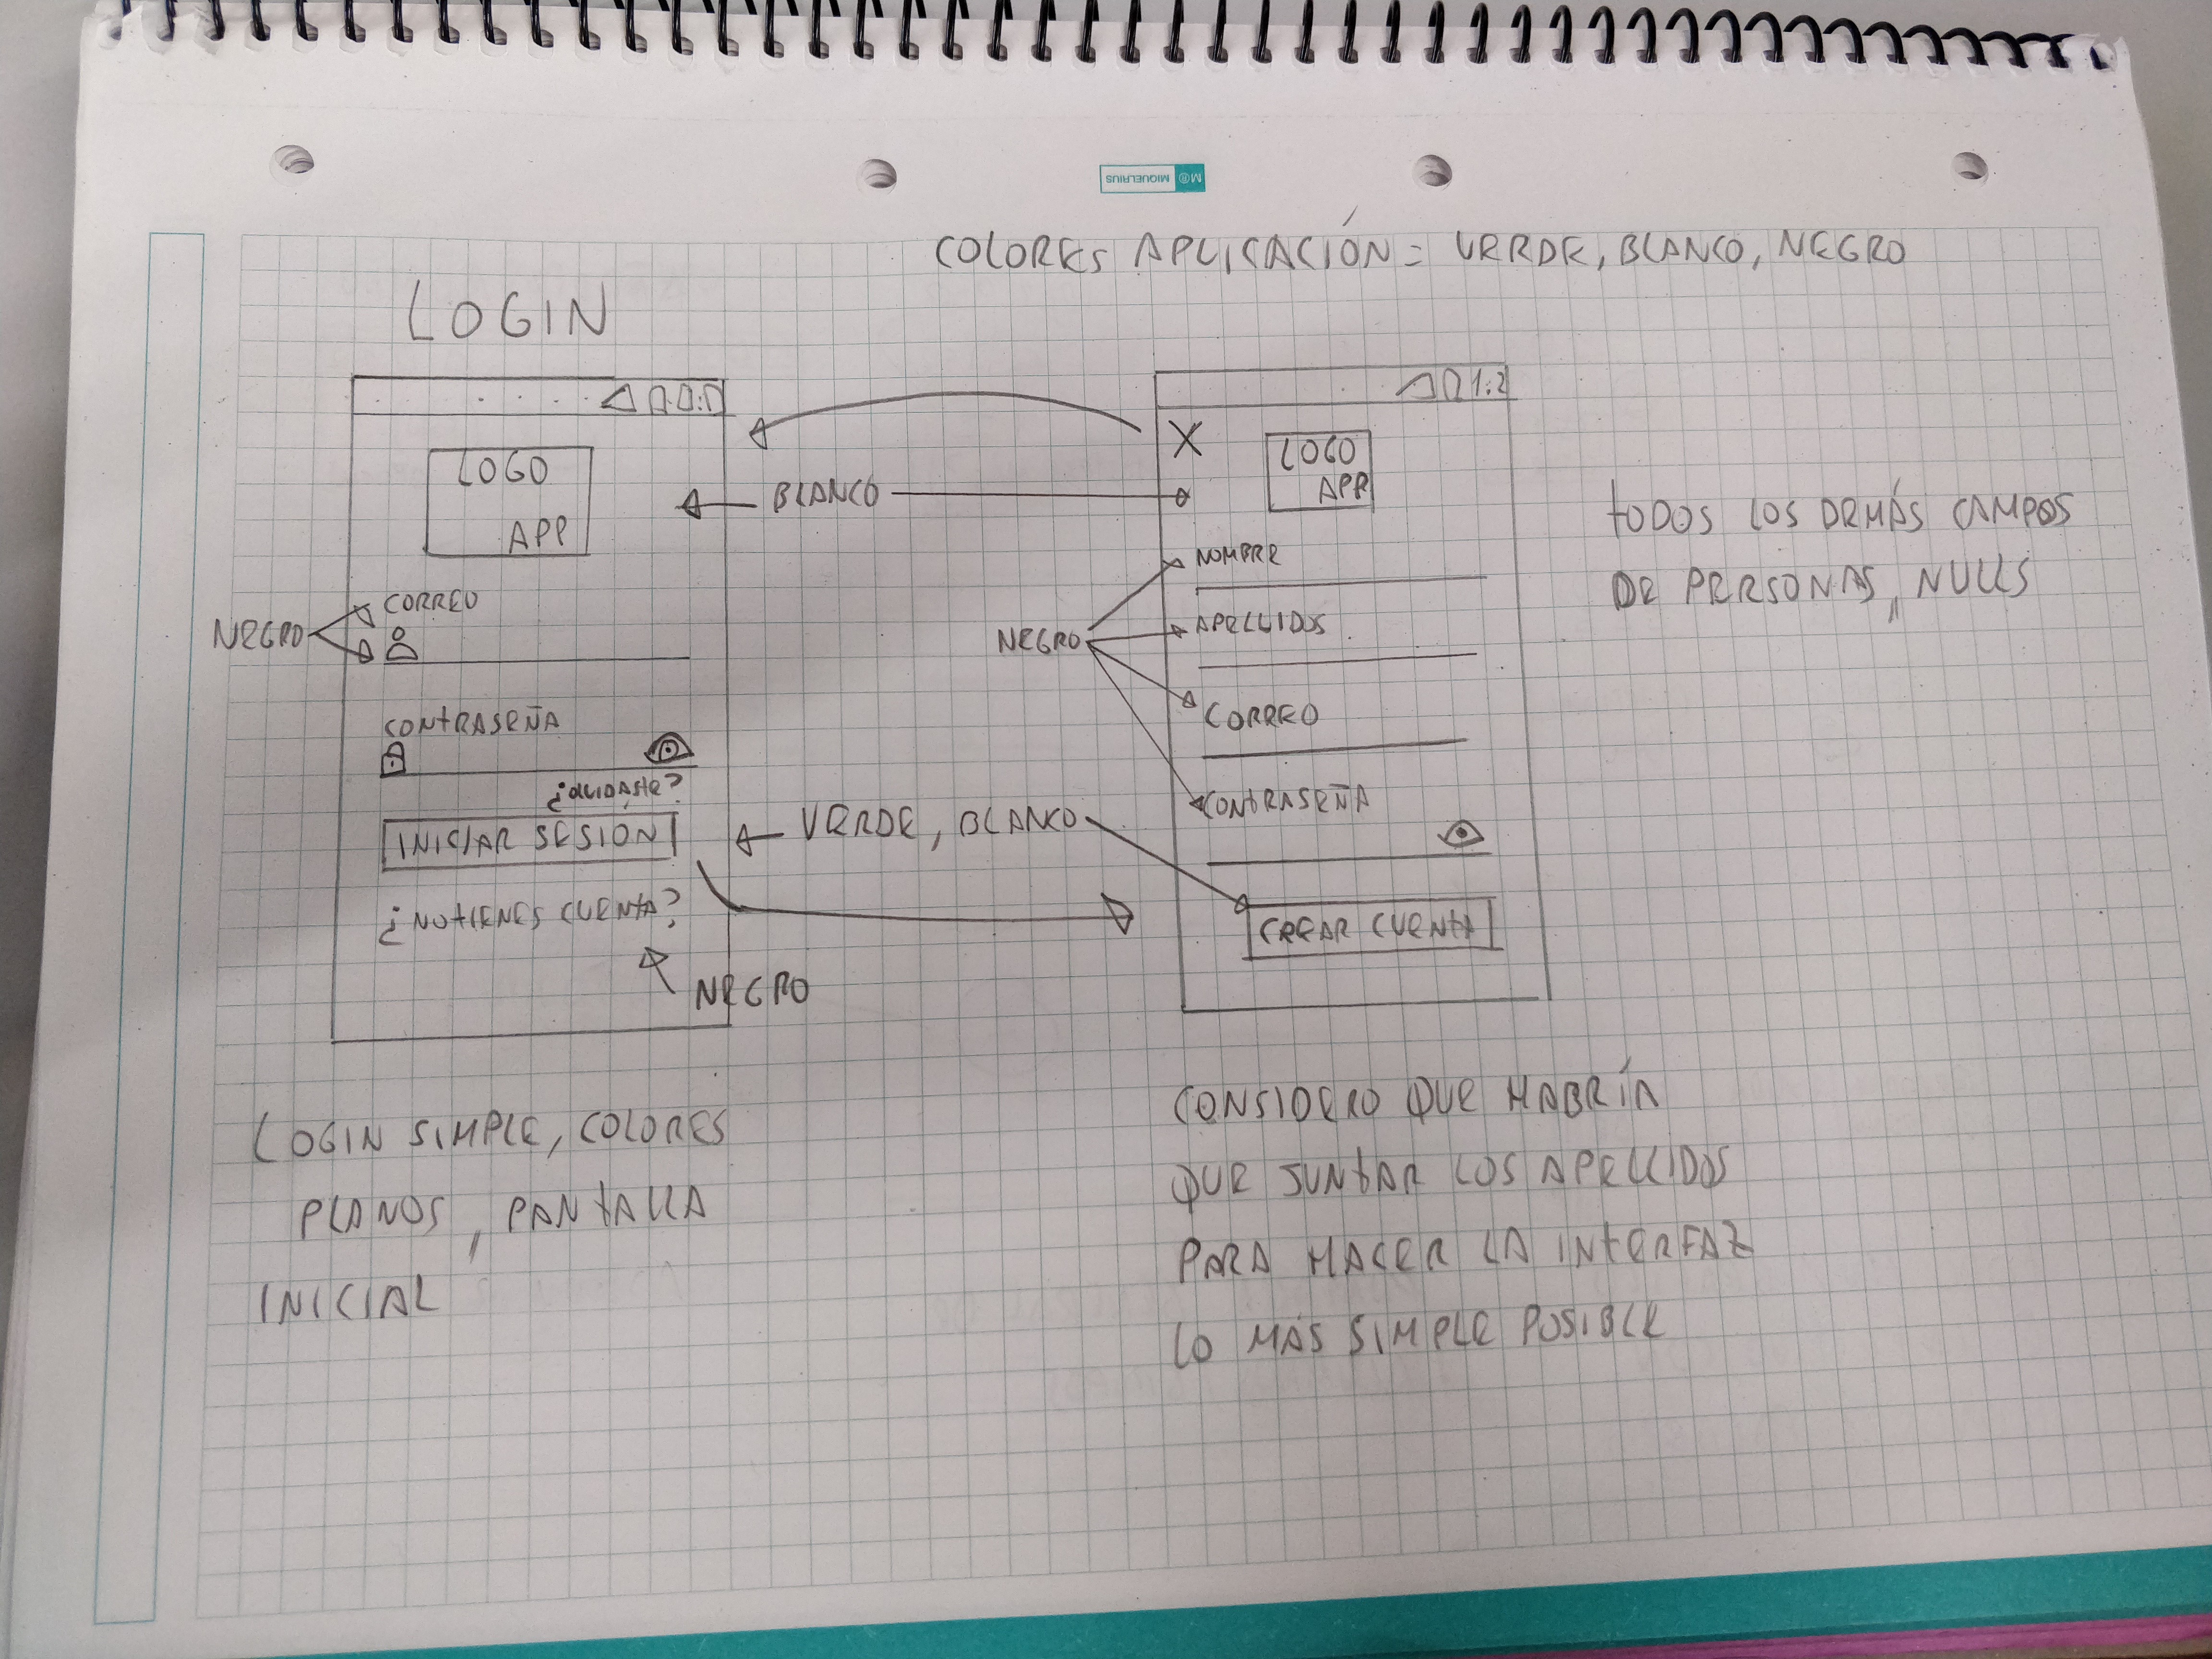 M® MIQUELRIUS
COLORES APLICACIÓN = VERDE, BLANCO, NEGRO
LOGIN
LOGO
APP
NEGRO
CORREO
CONTRASEÑA
¿OLVIDASTE?
INICIAR SESIÓN
¿NO TIENES CUENTA?
NEGRO
BLANCO
VERDE, BLANCO
1:2
X
LOGO
APP
NEGRO
NOMBRE
APELLIDOS
CORREO
CONTRASEÑA
CREAR CUENTA
TODOS LOS DEMÁS CAMPOS
DE PERSONAS, NULLS
LOGIN SIMPLE, COLORES
PLANOS, PANTALLA
INICIAL
CONSIDERO QUE HABRÍA
QUE JUNTAR LOS APELLIDOS
PARA HACER LA INTERFAZ
LO MÁS SIMPLE POSIBLE